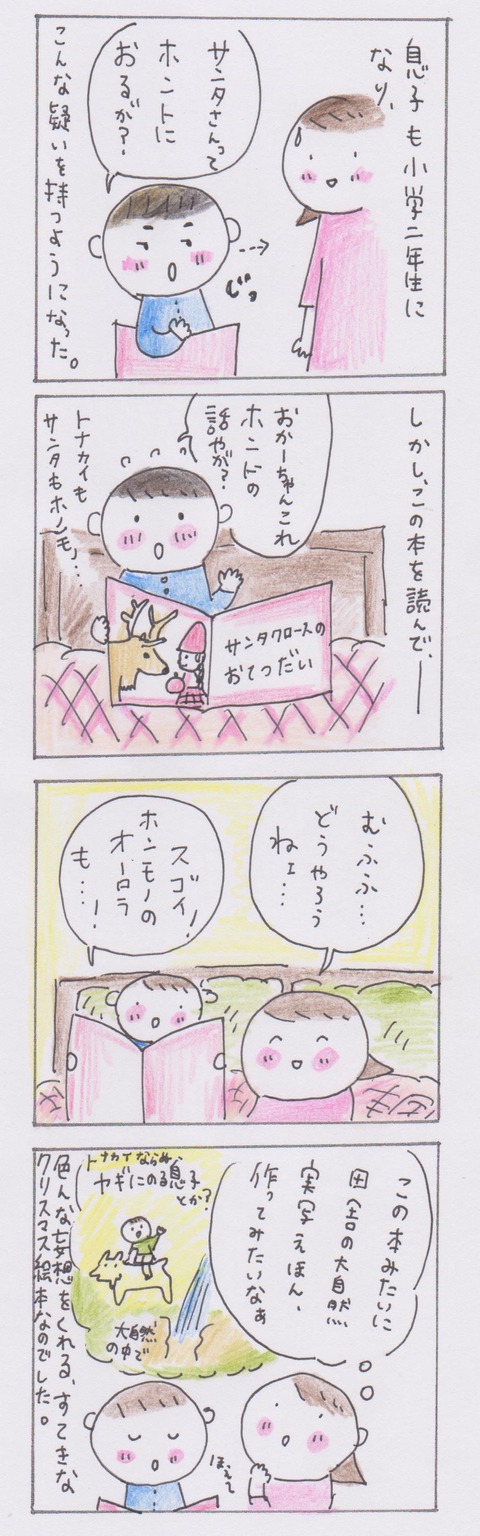 息子も小学二年生に
なり、
サンタさんって
ホントに
おるが?
じっ
こんな疑いを持つようになった。
しかし、この本を読んで、
おかーちゃんこれ
ホンドの
話やが?
トナカイも
サンタもホンモノ…
サンタクロースの
おてつだい
むふふ…
どうやろう
ねェ…
スゴイ!
ホンモノの
オーロラ
も…!
この本みたいに
田舎の大自然
実写えほん、
作ってみたいなぁ
トナカイならぬ、
ヤギにのる息子
とか?
大自然
の中で
ほえ〜
色んな妄想をくれる、すてきな
クリスマス絵本なのでした。